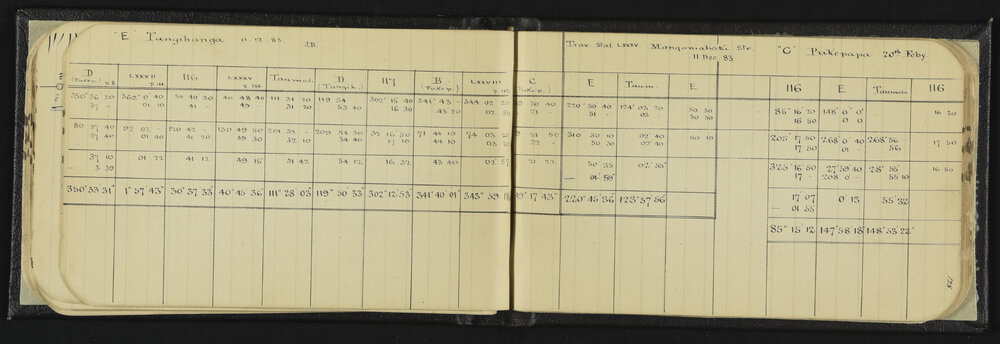 "E" Tangihanga 11.12.83. J.D.
D LXXXII 116 LXXXV Taumat. D 117 B LXXVIII C
(Pukep.) p.8 p.144 p.144 (Tangih.) (Pukep.)
350° 36 20 362° 0' 40 30 40 30 40 48 40 111 31 20 119 54 302° 15 40 341° 43 - 344 02 20
37 - 01 10 41 - 49 31 20 53 40 16 30 43 20 02 50 21 -
80 37 40 92 02 - 120 42 - 130 49 50 201 32 - 209 54 30 32 16 50 71 44 10 74 03 20 21 50
37 40 01 40 41 20 49 30 32 10 54 40 17 10 44 10 03 20 22 -
37 10 01 22 41 12 49 15 31 42 54 12 16 32 43 40 02 57 21 22
- 3 39
350° 33 31" 1° 57' 43" 30° 37' 33 40° 45 36 111° 28 03 119° 50 33 302° 12' 53 341° 40 01" 343° 59 18 17' 43"
Trav. Stat LXXIV. Mangamahaki Str.
11 Dec 83
E Taum. E
220° 50 40 124° 03 20 50 30
51 - 03 - 50 50
310 50 10 02' 40 50 10
50 30 02 40
50 35 02' 55"
- 04 59"
220° 45 36 123° 57' 56
"C" Pukepapa 20th Feby.
116 E Taumata 116
85° 16 20 148° 0' 0" 16 20
16 50 0' 0
205° 17 50 268° 0' 40 268° 56 - 17 50
17 50 01 - 56
325° 16 50 27° 59' 40 28° 55 16 50
17 - 208 0' - 55 10
17 07 0' 13 55 32
- 01 55
85° 15 12 147° 58 18 148° 53' 22"